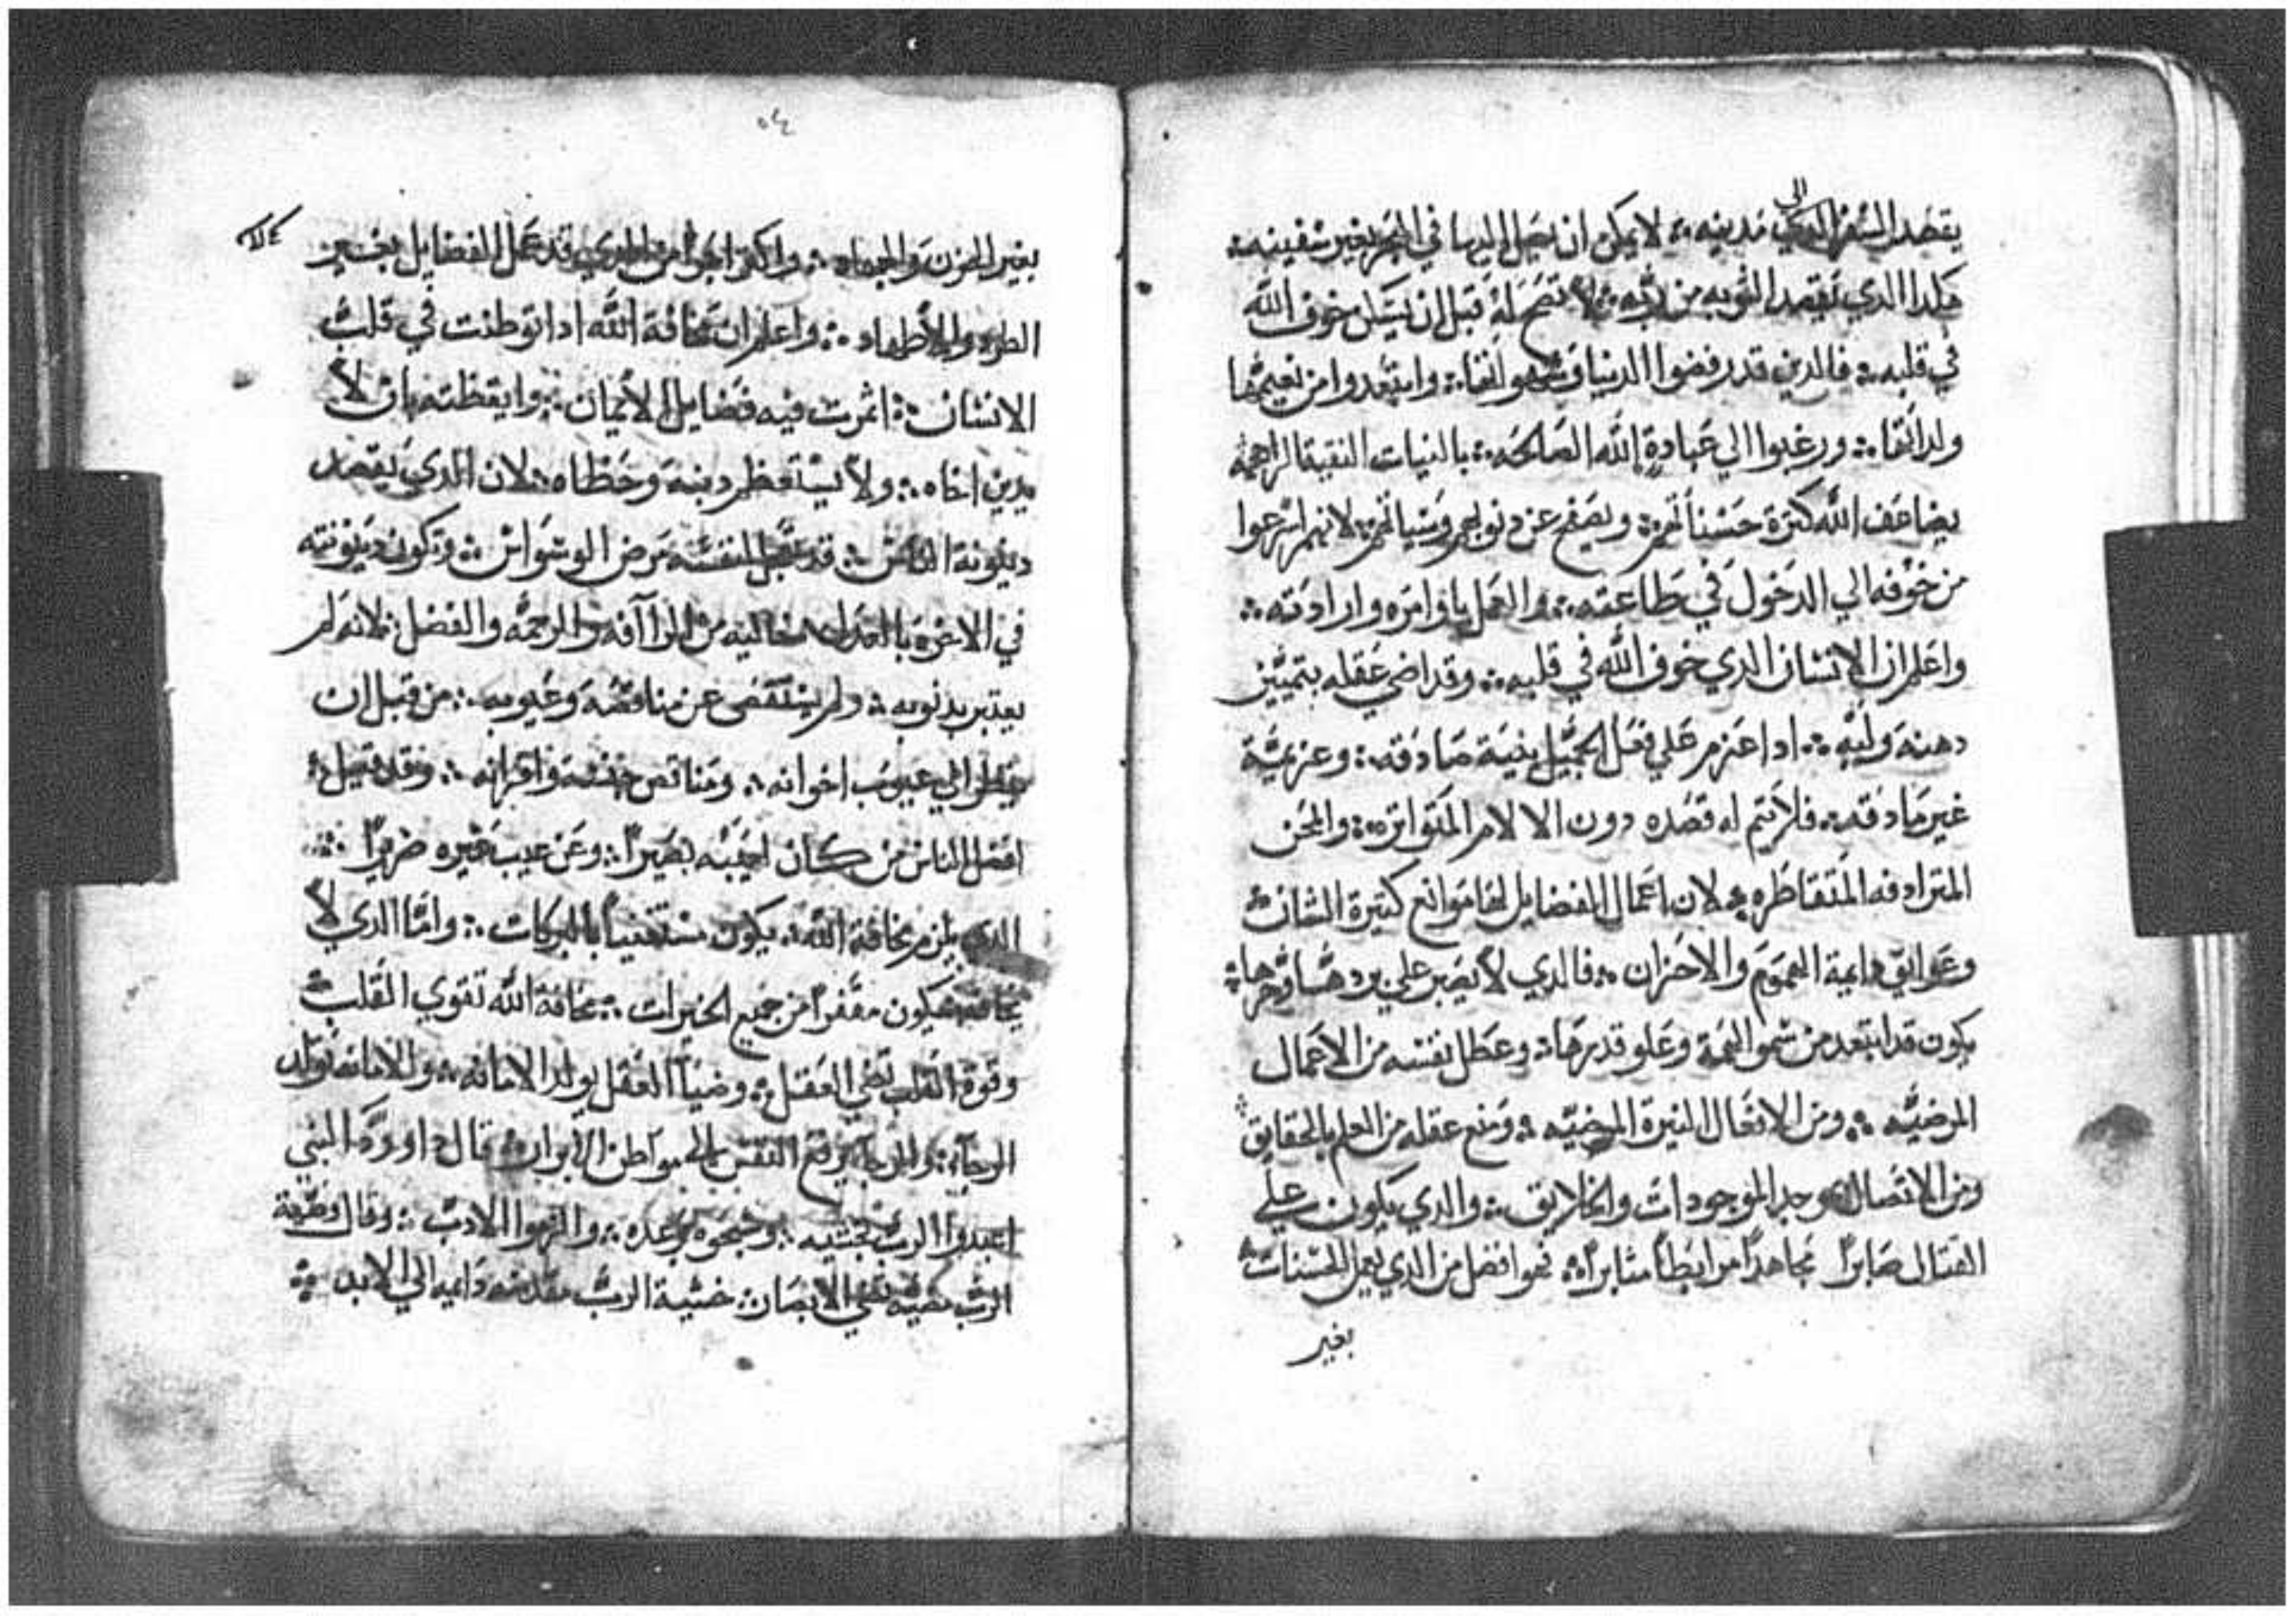 يقصد السفر الى مدينه ܀ لا يمكن ان يصل اليها في البحر بغير سفينه ܀
هكدا الدي يقصد التوبه من ربه ܀ لا تصح له قبل ان يتكل خوف الله
في قلبه ܀ فالدين قد رفضوا الدنيا وشهواتها ܀ وابتعدوا من نعيمها
ولداتها ܀ ورغبوا الي عبادة الله الصالحه ܀ بالنيات النقيه
يضاعف الله كثرة حسناتهم ܀ ويصفح عن دنوبهم وسياتهم ܀ لانهم اسرعوا
من خوفه الي الدخول في طاعته ܀ والعمل باوامره وارادته ܀
واعلم ان الانسان الدي خوف الله في قلبه ܀ وقد اضي عقله بتمييز
دهنه ولبه ܀ ادا عزم علي فعل الجميل بنية صادقه ܀ وعزيمة
غير مادقه ܀ فلا يتم له قصده دون الالام المتواتره ܀ والمحن
المترادفه المتقاطره ܀ لان اعمال الفضايل لها موانع كتيرة الشان
وعوايق دايمة الهموم والاحزان ܀ فالدي لا يصبر علي بردها وحرها ܀
يكون قد ابتعد من سمو الهمة وعلو قدرها ܀ وعطل نفسه من الاعمال
المرضيه ܀ ومن الافعال النيرة المضيه ܀ ومنع عقله من العلم بالحقايق
ومن الاتصال بموجد الموجودات والخلايق ܀ والدي يكون علي
القتال صابرا مجاهدا مرابطا مثابرا ܀ فهو افضل من الدي يعمل الحسنات
بغير
٥٤
بغير الحزن والجهاد ܀ واكتر اجرا من الدي قد عمل الفضايل بغير
الطرد والاطهاد ܀ واعلم ان مخافة الله ادا توطنت في قلب
الانسان ܀ اثمرت فيه فضايل الايمان ܀ وايقظته بان لا
يدين اخاه ܀ ولا يستعظم دينه وخطاه ܀ لان الدي يقصد
دينونة الناس ܀ قد لنفسه مرض الوسواس ܀ وتكون دينونته
في الاخرة بالعدل خاليه من الراافه والرحمه والفضل ܀ لانه لم
يعتبر بدنوبه ܀ ولم يستقصى عن مناقصه وعيوبه ܀ من قبل ان
ينظر الي عيوب اخوانه ܀ ومناقص واقرانه ܀ وقد قيل ܀
افضل الناس من كان لعيبه بصيرا ܀ وعن عيب غيره ضريرا ܀
الدي يلزم مخافة الله ܀ يكون مستغنيا بالبركات ܀ واما الدي لا
يخافه فيكون مقفرا من جميع الخيرات ܀ مخافة الله تقوي القلب
وقوة القلب تضي العقل ܀ وضيا العقل يولد الامانه ܀ والامانه تولد
الرجا ܀ والرجا يرفع النفس الي مواطن الابرار ܀ قال داوود النبي
اعبدوا الرب بخشيه ܀ وسبحوه برعده ܀ والزموا الادب ܀ وقال وصية
الرب مضيه تضي الابصار ܀ خشية الرب مقدسه دايمه الي الابد ܀